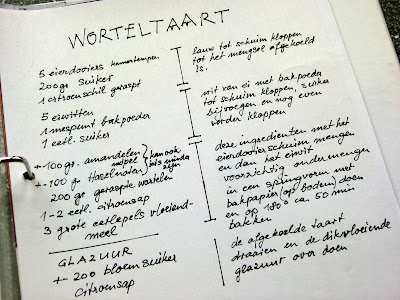 WORTELTAART
5 eierdooiers kamertemper.
200 gr suiker
1 citroenschil geraspt
5 eiwitten
1 mespunt bakpoeder
1 eetl. suiker
+- 100 gr. amandelen
+- 100 gr Haselnoten
200 gr geraspte wortelen
1-2 eetl. citroensap
3 grote eetlepels vloeiend-
meel
GLAZUUR
+- 200 bloemsuiker
citroensap
lauw tot schuim kloppen
tot het mengsel afgekoeld
is.
wit van ei met bakpoeder
tot schuim kloppen, suiker
bijvoegen en nog even
verder kloppen
deze ingredienten met het
eierdooierschuim mengen
en dan het eiwit
voorzichtig ondermengen
in een springvorm met
bakpapier (op bodem) doen
en op 180° ca 50 min
bakken
de afgekoelde taart
draaien en de dikvloeiende
glazuur over doen